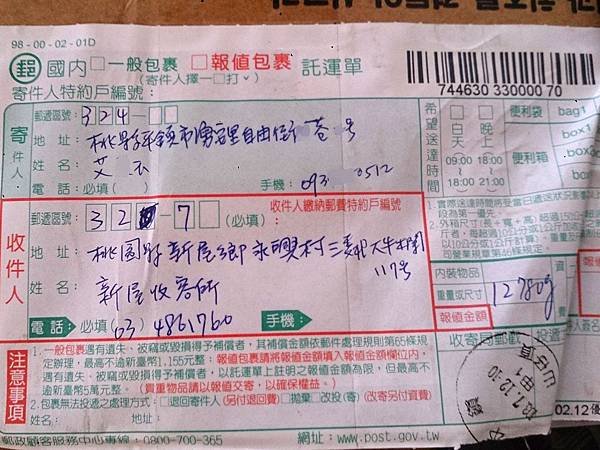 98-00-02-01D
郵 國內□一般包裹 □報值包裹 託運單
(寄件人擇一□打ˇ)
寄件人特約戶編號：
744630 330000 70
寄件人
郵遞區號：324-□□
地址：桃縣平鎮市湧豐里自由街 巷 號
姓名：艾
電話：必填( ) 手機：093 0512
希望送達時間
□白天 09:00 18:00
□晚上 18:00 21:00
便利袋 bag1
box1
便利箱 box
收件人
收件人繳納郵費特約戶編號
郵遞區號：32 7□□ (必填)：
地址：桃園縣新屋鄉永興村三鄰大牛欄
117號
姓名：新屋收容所
電話：必填(03)4861760 手機：
1.實際送達時間將受當日遞送狀況影響
段為第一優先。
2.外箱尺寸(長+寬+高)超過
司營業規章第46條規定。
內裝物品
重量或尺寸 12780g
報值金額
收寄局郵戳
注意事項
1.一般包裹遇有遺失、被竊或毀損得予補償者，其補償金額依郵件處理規則第65條
規定辦理，最高不逾新臺幣1,155元整；報值包裹請將報值金額填入報值金額欄位內，
遇有遺失、被竊或毀損得予補償者，以託運單上註明之報值金額為限，但最高不
逾新臺幣5萬元整。(貴重物品請以報值交寄，以確保權益。)
2.包裹無法投遞之處理方式：□退回寄件人(另付退回費)□拋棄□改投(寄)(改寄另付資費)
姓名： 地址：
郵政顧客服務中心專線：0800-700-365 網址：www.post.gov.tw
02.12